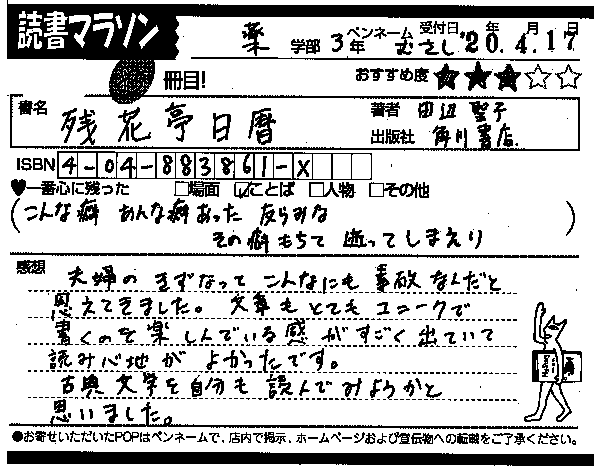 読書マラソン
薬 学部 3年 ペンネーム むさし 受付日 '20年.4月.17日
冊目! おすすめ度 ★★★☆☆
書名 残花亭日暦
著者 田辺聖子
出版社 角川書店
ISBN 4-04-883861-X
♥一番心に残った □場面 ☑ことば □人物 □その他
(こんな癖 あんな癖あった 友らみな
その癖もちて 逝ってしまえり)
感想 夫婦のきずなって こんなにも 素敵なんだと
思えてきました。 文章も とても ユニークで
書くのを楽しんでいる感がすごく出ていて
読み心地が よかったです。
古典文学を自分も 読んでみようかと
思いました。
●お寄せいただいたPOPはペンネームで、店内で掲示、ホームページおよび宣伝物への転載をご了承ください。